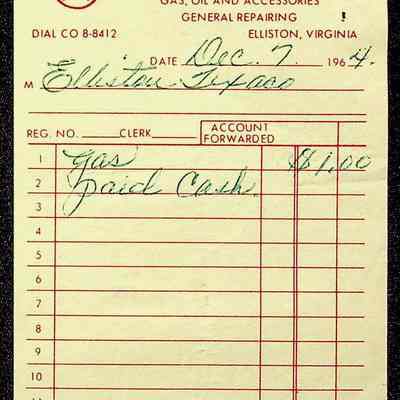 GAS, OIL AND ACCESSORIES
GENERAL REPAIRING !
DIAL CO 8-8412 ELLISTON, VIRGINIA
DATE Dec. 7. 1964.
M Elliston Texaco
REG. NO. CLERK ACCOUNT FORWARDED
1 gas $1.00
2 paid Cash.
3
4
5
6
7
8
9
10